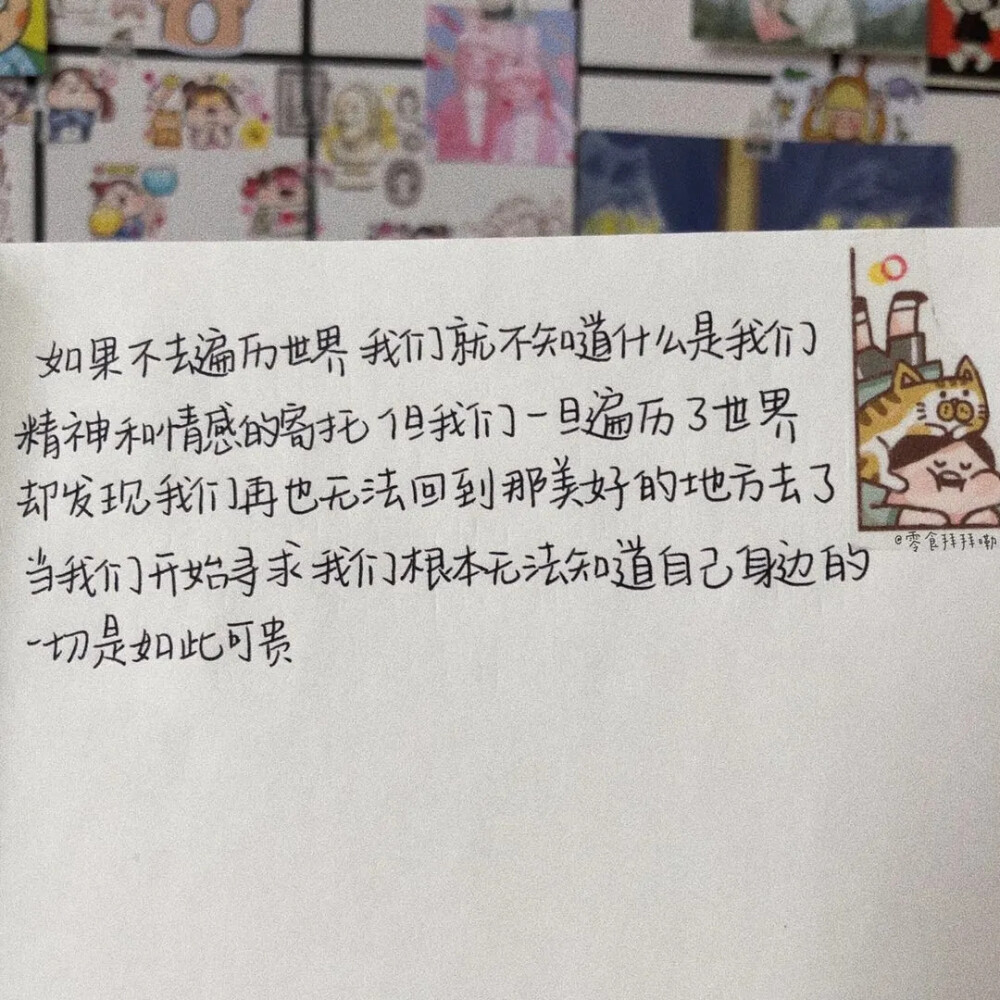 如果不去遍历世界 我们就不知道什么是我们
精神和情感的寄托 但我们一旦遍历了世界
却发现我们再也无法回到那美好的地方去了
当我们开始寻求 我们根本无法知道自己身边的
一切是如此可贵
@零食拜拜嘞